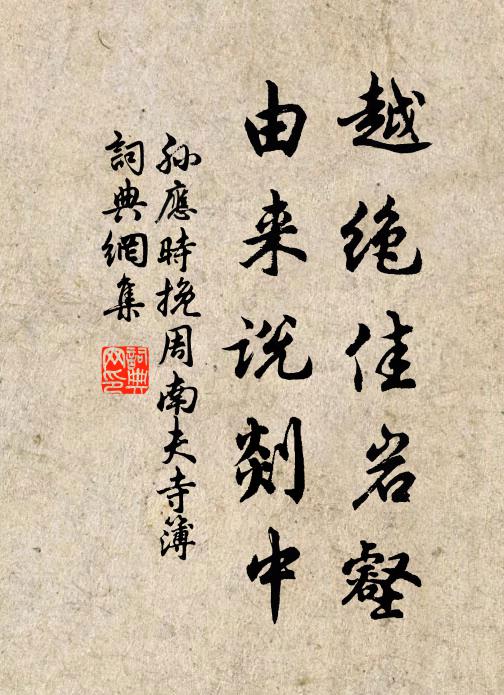 越绝佳岩壑
由来说剡中
孙應時挽周南夫寺簿
詞典網集
詞典网印